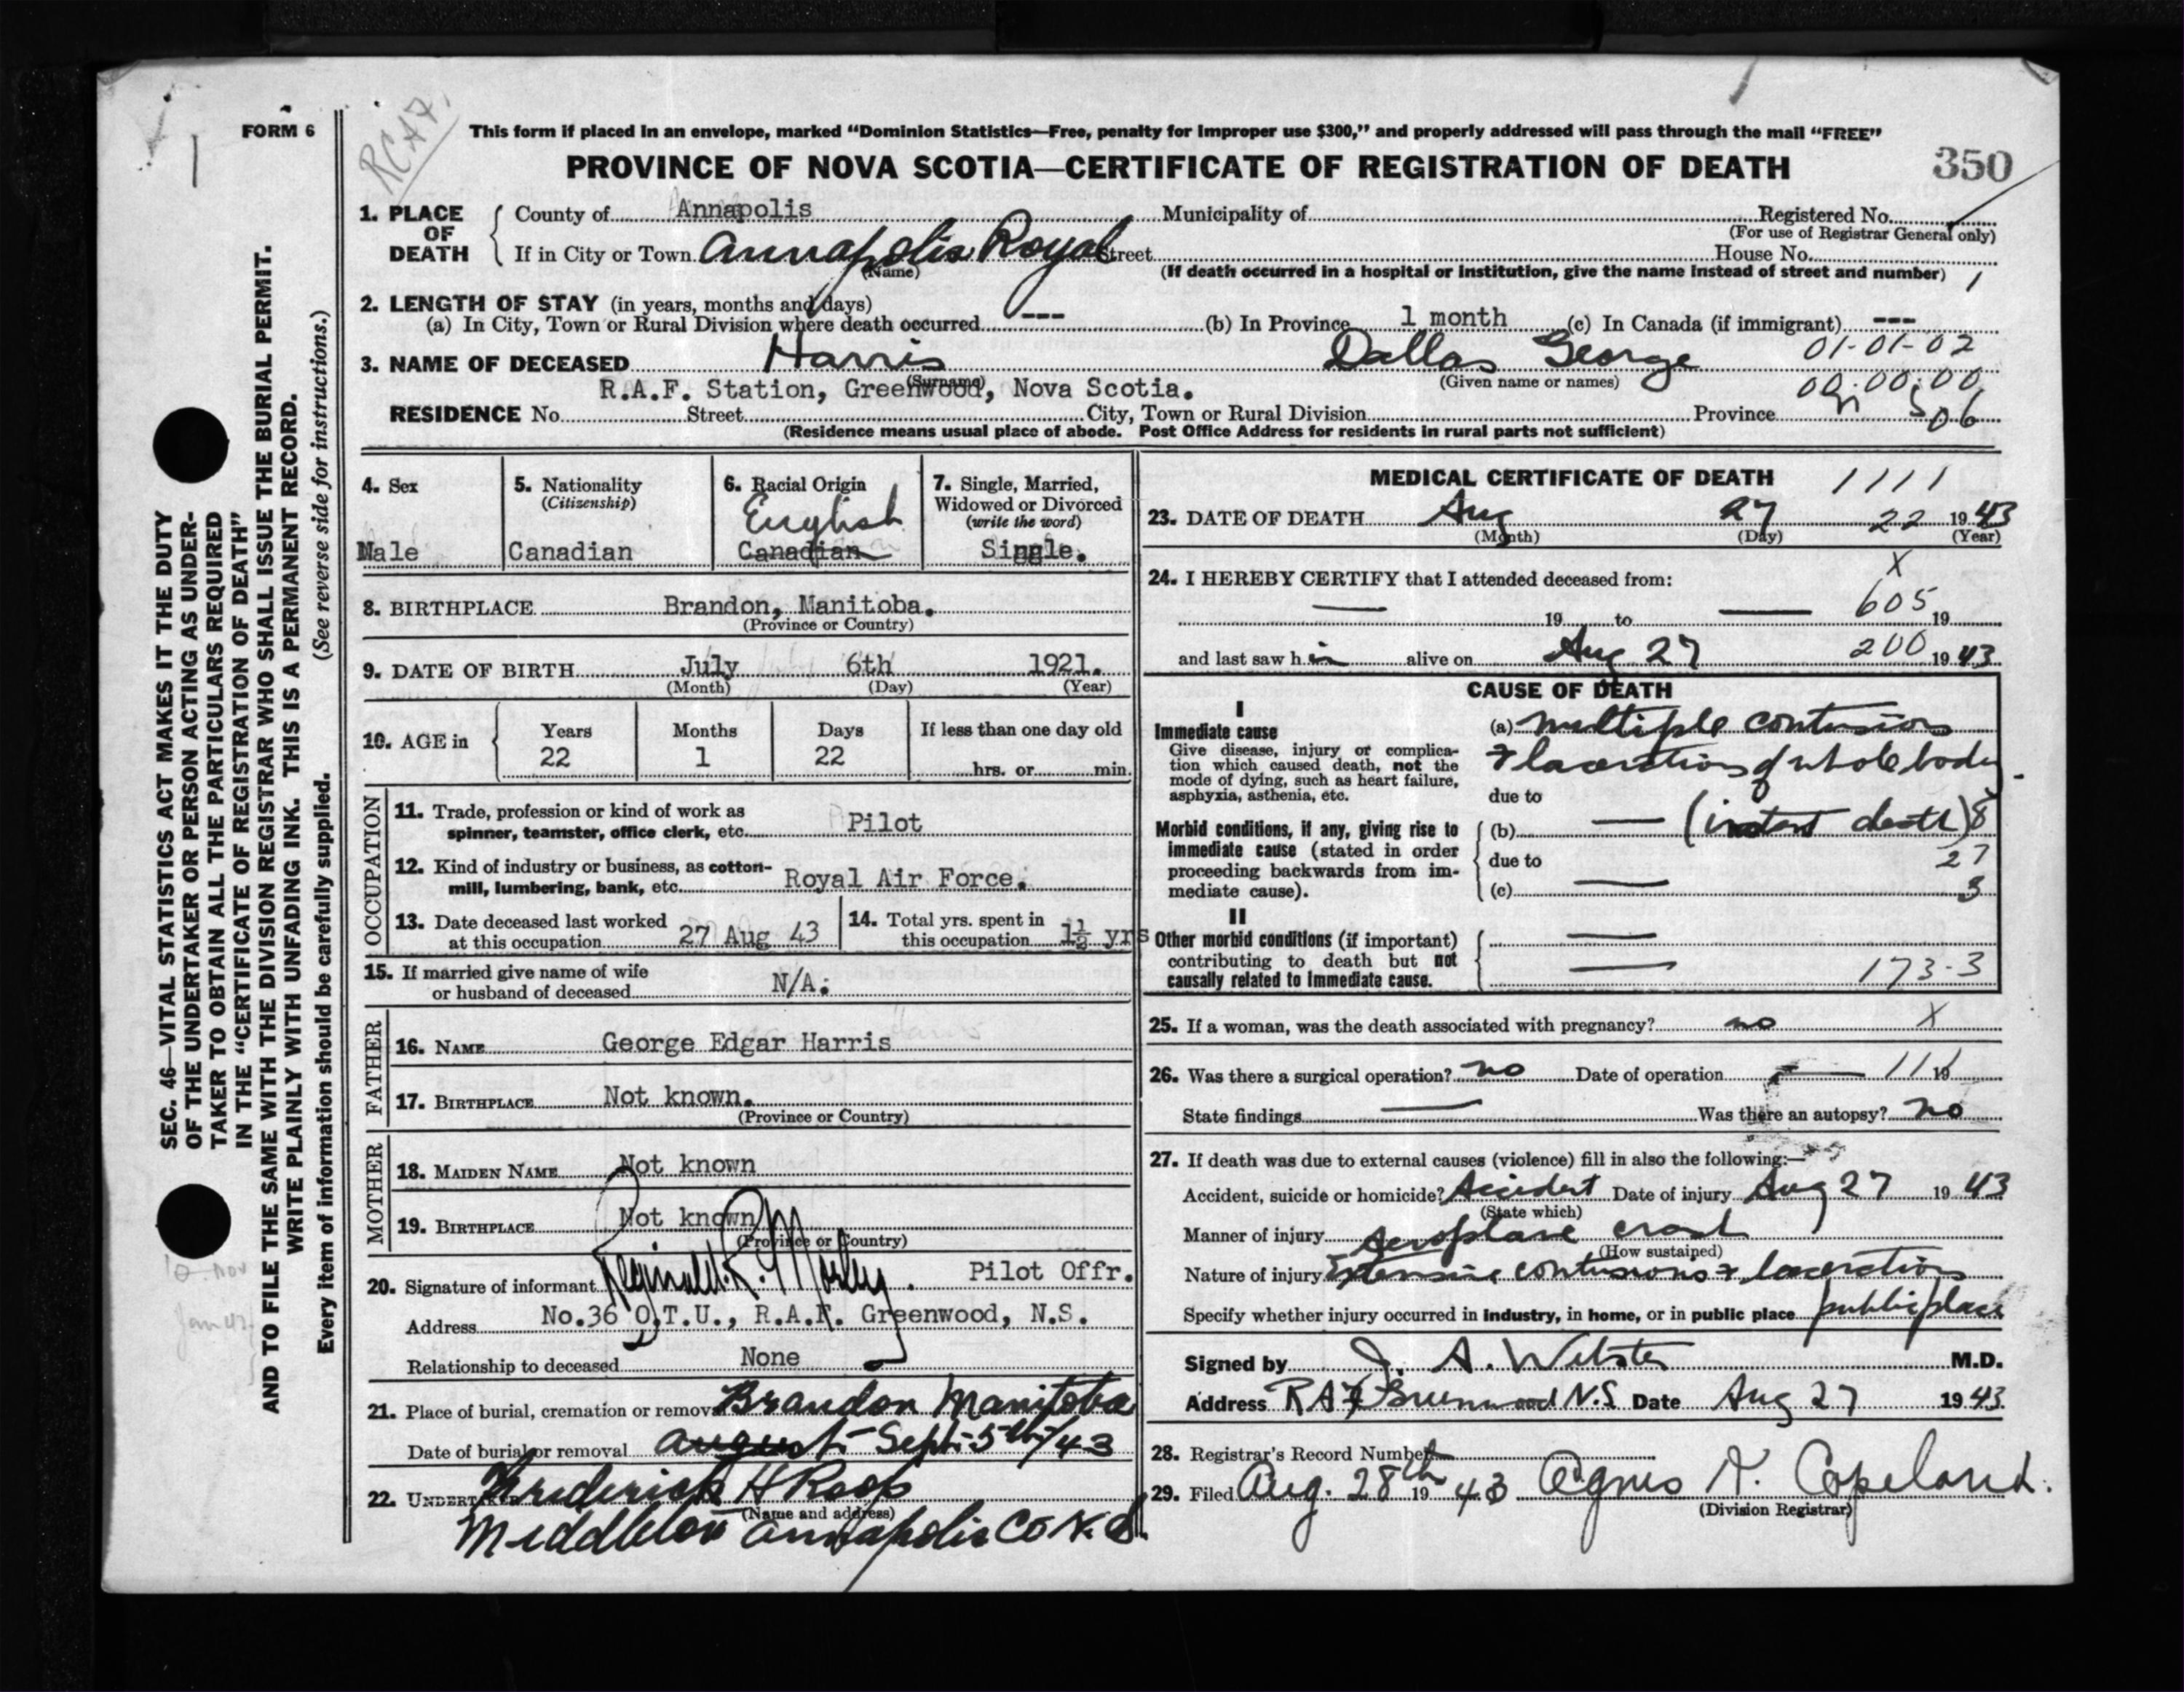 FORM 6
RCAF
This form if placed in an envelope, marked “Dominion Statistics—Free, penalty for improper use $300,” and properly addressed will pass through the mail “FREE”
PROVINCE OF NOVA SCOTIA—CERTIFICATE OF REGISTRATION OF DEATH
350
1. PLACE OF DEATH
County of Annapolis Municipality of Registered No.
(For use of Registrar General only)
If in City or Town Annapolis Royal Street House No.
(Name) (If death occurred in a hospital or institution, give the name instead of street and number) 1
2. LENGTH OF STAY (in years, months and days)
(a) In City, Town or Rural Division where death occurred --- (b) In Province 1 month (c) In Canada (if immigrant) ---
01-01-02
3. NAME OF DECEASED Harris Dallas George
(Surname) (Given name or names) 00:00:00
R.A.F. Station, Greenwood, Nova Scotia.
506
RESIDENCE No. Street City, Town or Rural Division Province
(Residence means usual place of abode. Post Office Address for residents in rural parts not sufficient)
4. Sex
Male
5. Nationality
(Citizenship)
Canadian
6. Racial Origin
English
Canadian
7. Single, Married,
Widowed or Divorced
(write the word)
Single.
8. BIRTHPLACE Brandon, Manitoba.
(Province or Country)
9. DATE OF BIRTH July 6th 1921.
(Month) (Day) (Year)
10. AGE in
Years Months Days If less than one day old
22 1 22 hrs. or min.
OCCUPATION
11. Trade, profession or kind of work as
spinner, teamster, office clerk, etc. Pilot
12. Kind of industry or business, as cotton-
mill, lumbering, bank, etc. Royal Air Force.
13. Date deceased last worked
at this occupation 27 Aug 43
14. Total yrs. spent in
this occupation 1½ yrs
15. If married give name of wife
or husband of deceased N/A.
FATHER
16. NAME George Edgar Harris
17. BIRTHPLACE Not known.
(Province or Country)
MOTHER
18. MAIDEN NAME Not known
19. BIRTHPLACE Not known
(Province or Country)
20. Signature of informant Reginald R. Morley. Pilot Offr.
Address No.36 O.T.U., R.A.F. Greenwood, N.S.
Relationship to deceased None
21. Place of burial, cremation or removal Brandon Manitoba
Date of burial or removal August Sept. 5th/43
22. UNDERTAKER Frederick H Roop
(Name and address)
Middleton Annapolis Co N.S.
MEDICAL CERTIFICATE OF DEATH 1111
23. DATE OF DEATH Aug 27 22 1943
(Month) (Day) (Year)
24. I HEREBY CERTIFY that I attended deceased from: X
— 19 to — 605 19
and last saw him alive on Aug 27 200 1943
CAUSE OF DEATH
I
Immediate cause
Give disease, injury or complica-
tion which caused death, not the
mode of dying, such as heart failure,
asphyxia, asthenia, etc.
(a) multiple contusions
& lacerations of whole body
due to
Morbid conditions, if any, giving rise to
immediate cause (stated in order
proceeding backwards from im-
mediate cause).
(b) — (instant death) 8
due to 27
(c) — 3
II
Other morbid conditions (if important)
contributing to death but not
causally related to immediate cause.
—
— 173-3
25. If a woman, was the death associated with pregnancy? no X
26. Was there a surgical operation? no Date of operation — 111 19
State findings — Was there an autopsy? no
27. If death was due to external causes (violence) fill in also the following:—
Accident, suicide or homicide? Accident Date of injury Aug 27 1943
(State which)
Manner of injury Aeroplane crash
(How sustained)
Nature of injury Extensive contusions & lacerations
Specify whether injury occurred in industry, in home, or in public place public place
Signed by J. A. Webster M.D.
Address RAF Greenwood N.S. Date Aug 27 1943.
28. Registrar's Record Number —
29. Filed Aug. 28th 1943 Agnes N. Copeland.
(Division Registrar)
SEC. 46—VITAL STATISTICS ACT MAKES IT THE DUTY
OF THE UNDERTAKER OR PERSON ACTING AS UNDER-
TAKER TO OBTAIN ALL THE PARTICULARS REQUIRED
IN THE “CERTIFICATE OF REGISTRATION OF DEATH”
AND TO FILE THE SAME WITH THE DIVISION REGISTRAR WHO SHALL ISSUE THE BURIAL PERMIT.
WRITE PLAINLY WITH UNFADING INK. THIS IS A PERMANENT RECORD.
Every item of information should be carefully supplied. (See reverse side for instructions.)